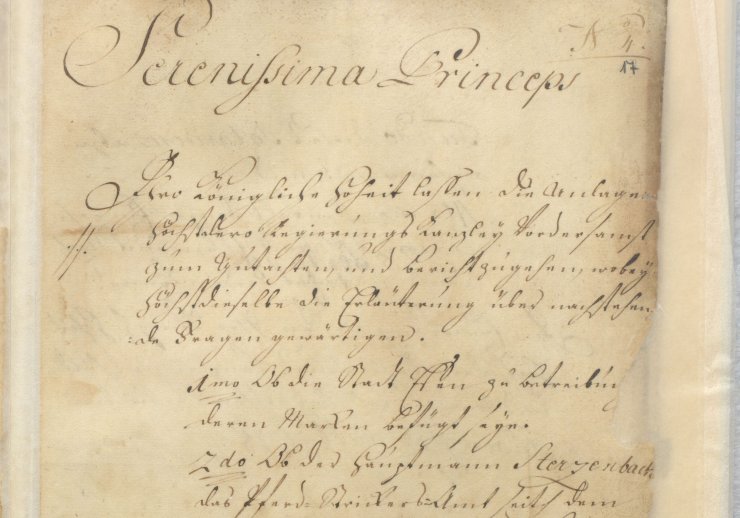 N 4.
17
Serenissima Princeps
Ihro Königliche Hoheit lassen die Anlage
höchstdero Regierungs Kanzley Vordersamst
zum Gutachten, und bericht zugehen, wobey
Höchstdieselbe die Erläuterung über nachstehen
:de Fragen gewärtigen.
1mo Ob die Stadt Essen zu betreibung
deren Marken befugt seye.
2do Ob der Hauptmann Sterzenbach
das Pferd-Strickers-Amt seith dem